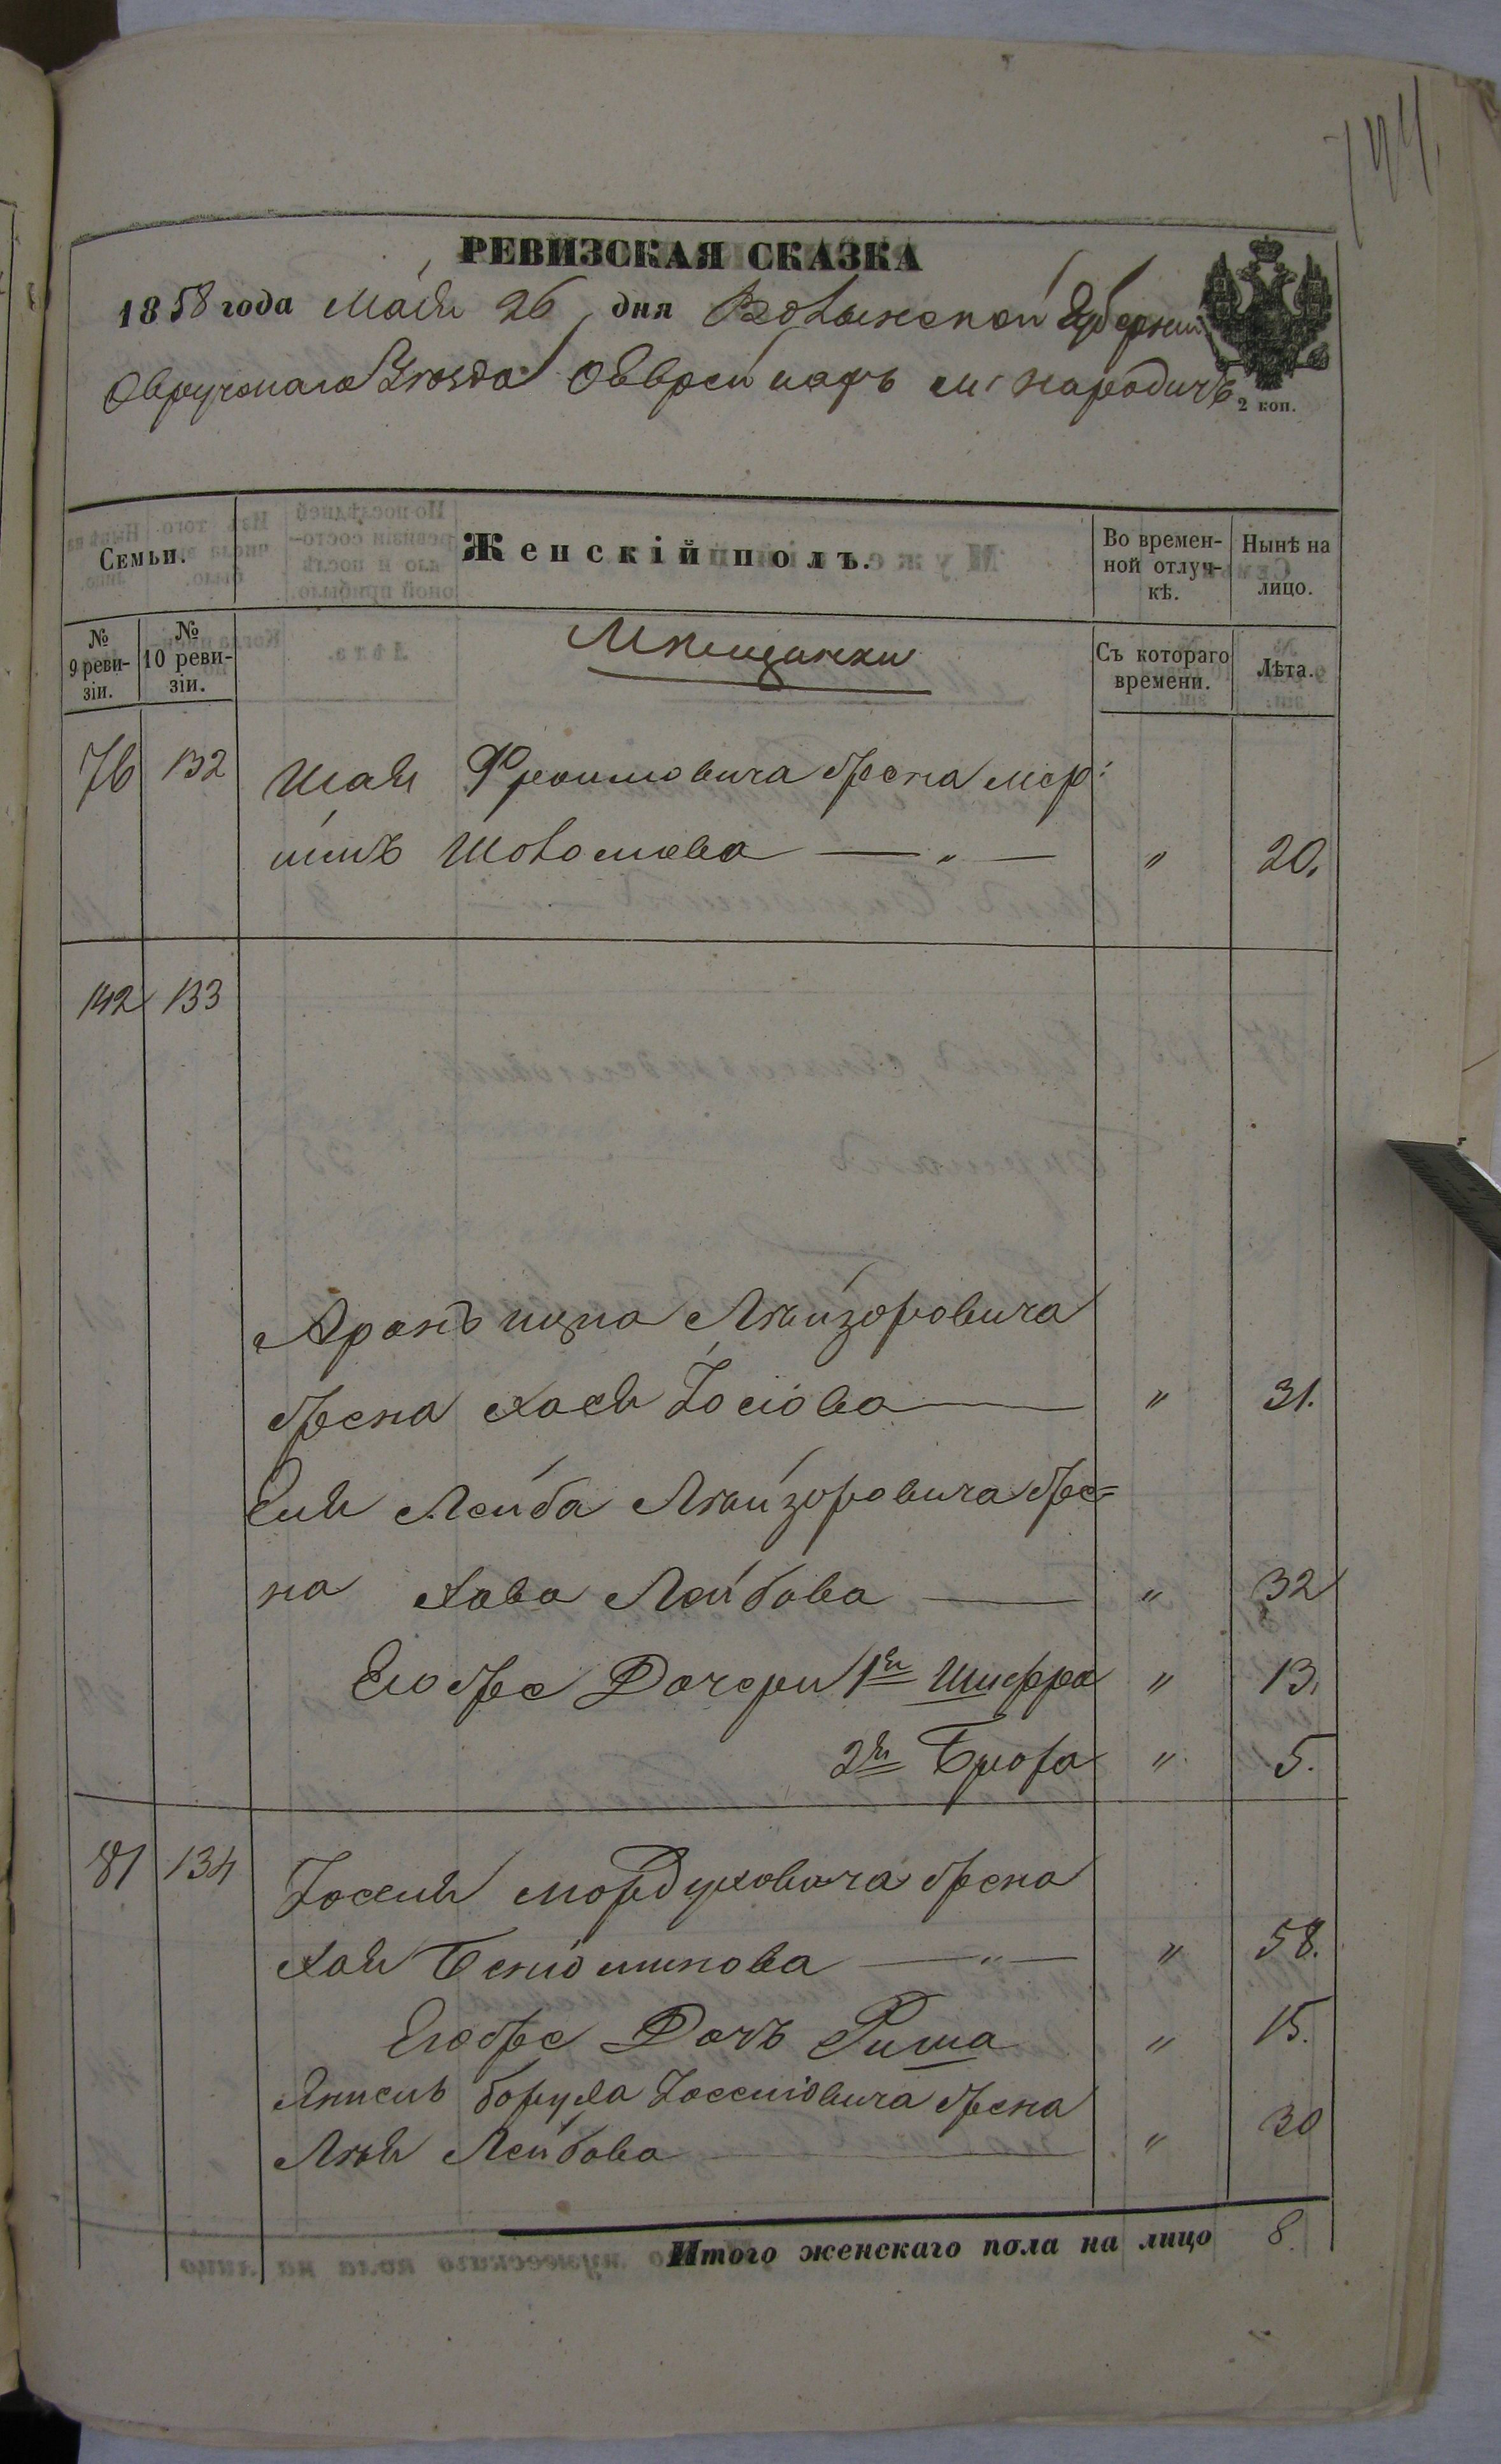 144.
РЕВИЗСКАЯ СКАЗКА
1858 года Маія 26 дня Волынской Губерніи
Овручскаго Уѣзда Оевреинахъ м: Народичъ
2 коп.
Семьи. Женскій полъ. Во времен-ной отлуч-кѣ. Нынѣ на лицо.
№ 9 реви-зіи. № 10 реви-зіи. Мѣщанки Съ котораго времени. Лѣта.
76 132 Шаи Фроимовича жена Мер:
имъ Шоломова — „ — „ 20.
142 133
Аронъ Ицка Лейзоровича
жена Хася Іосіова — „ 31.
Еля Лейба Лейзоровича же=
на Хава Лейбова — „ 32
Его же Дочери 1я Шифра „ 13.
2я Брофа „ 5.
81 134 Іосея Мордуховича жена
Хая Бенюминова — „ — „ 58.
Его же Дочь Риша „ 15.
Янкель Боруха Іосеіовича жена
Лея Лейбова — „ 30
Итого женскаго пола на лицо 8.